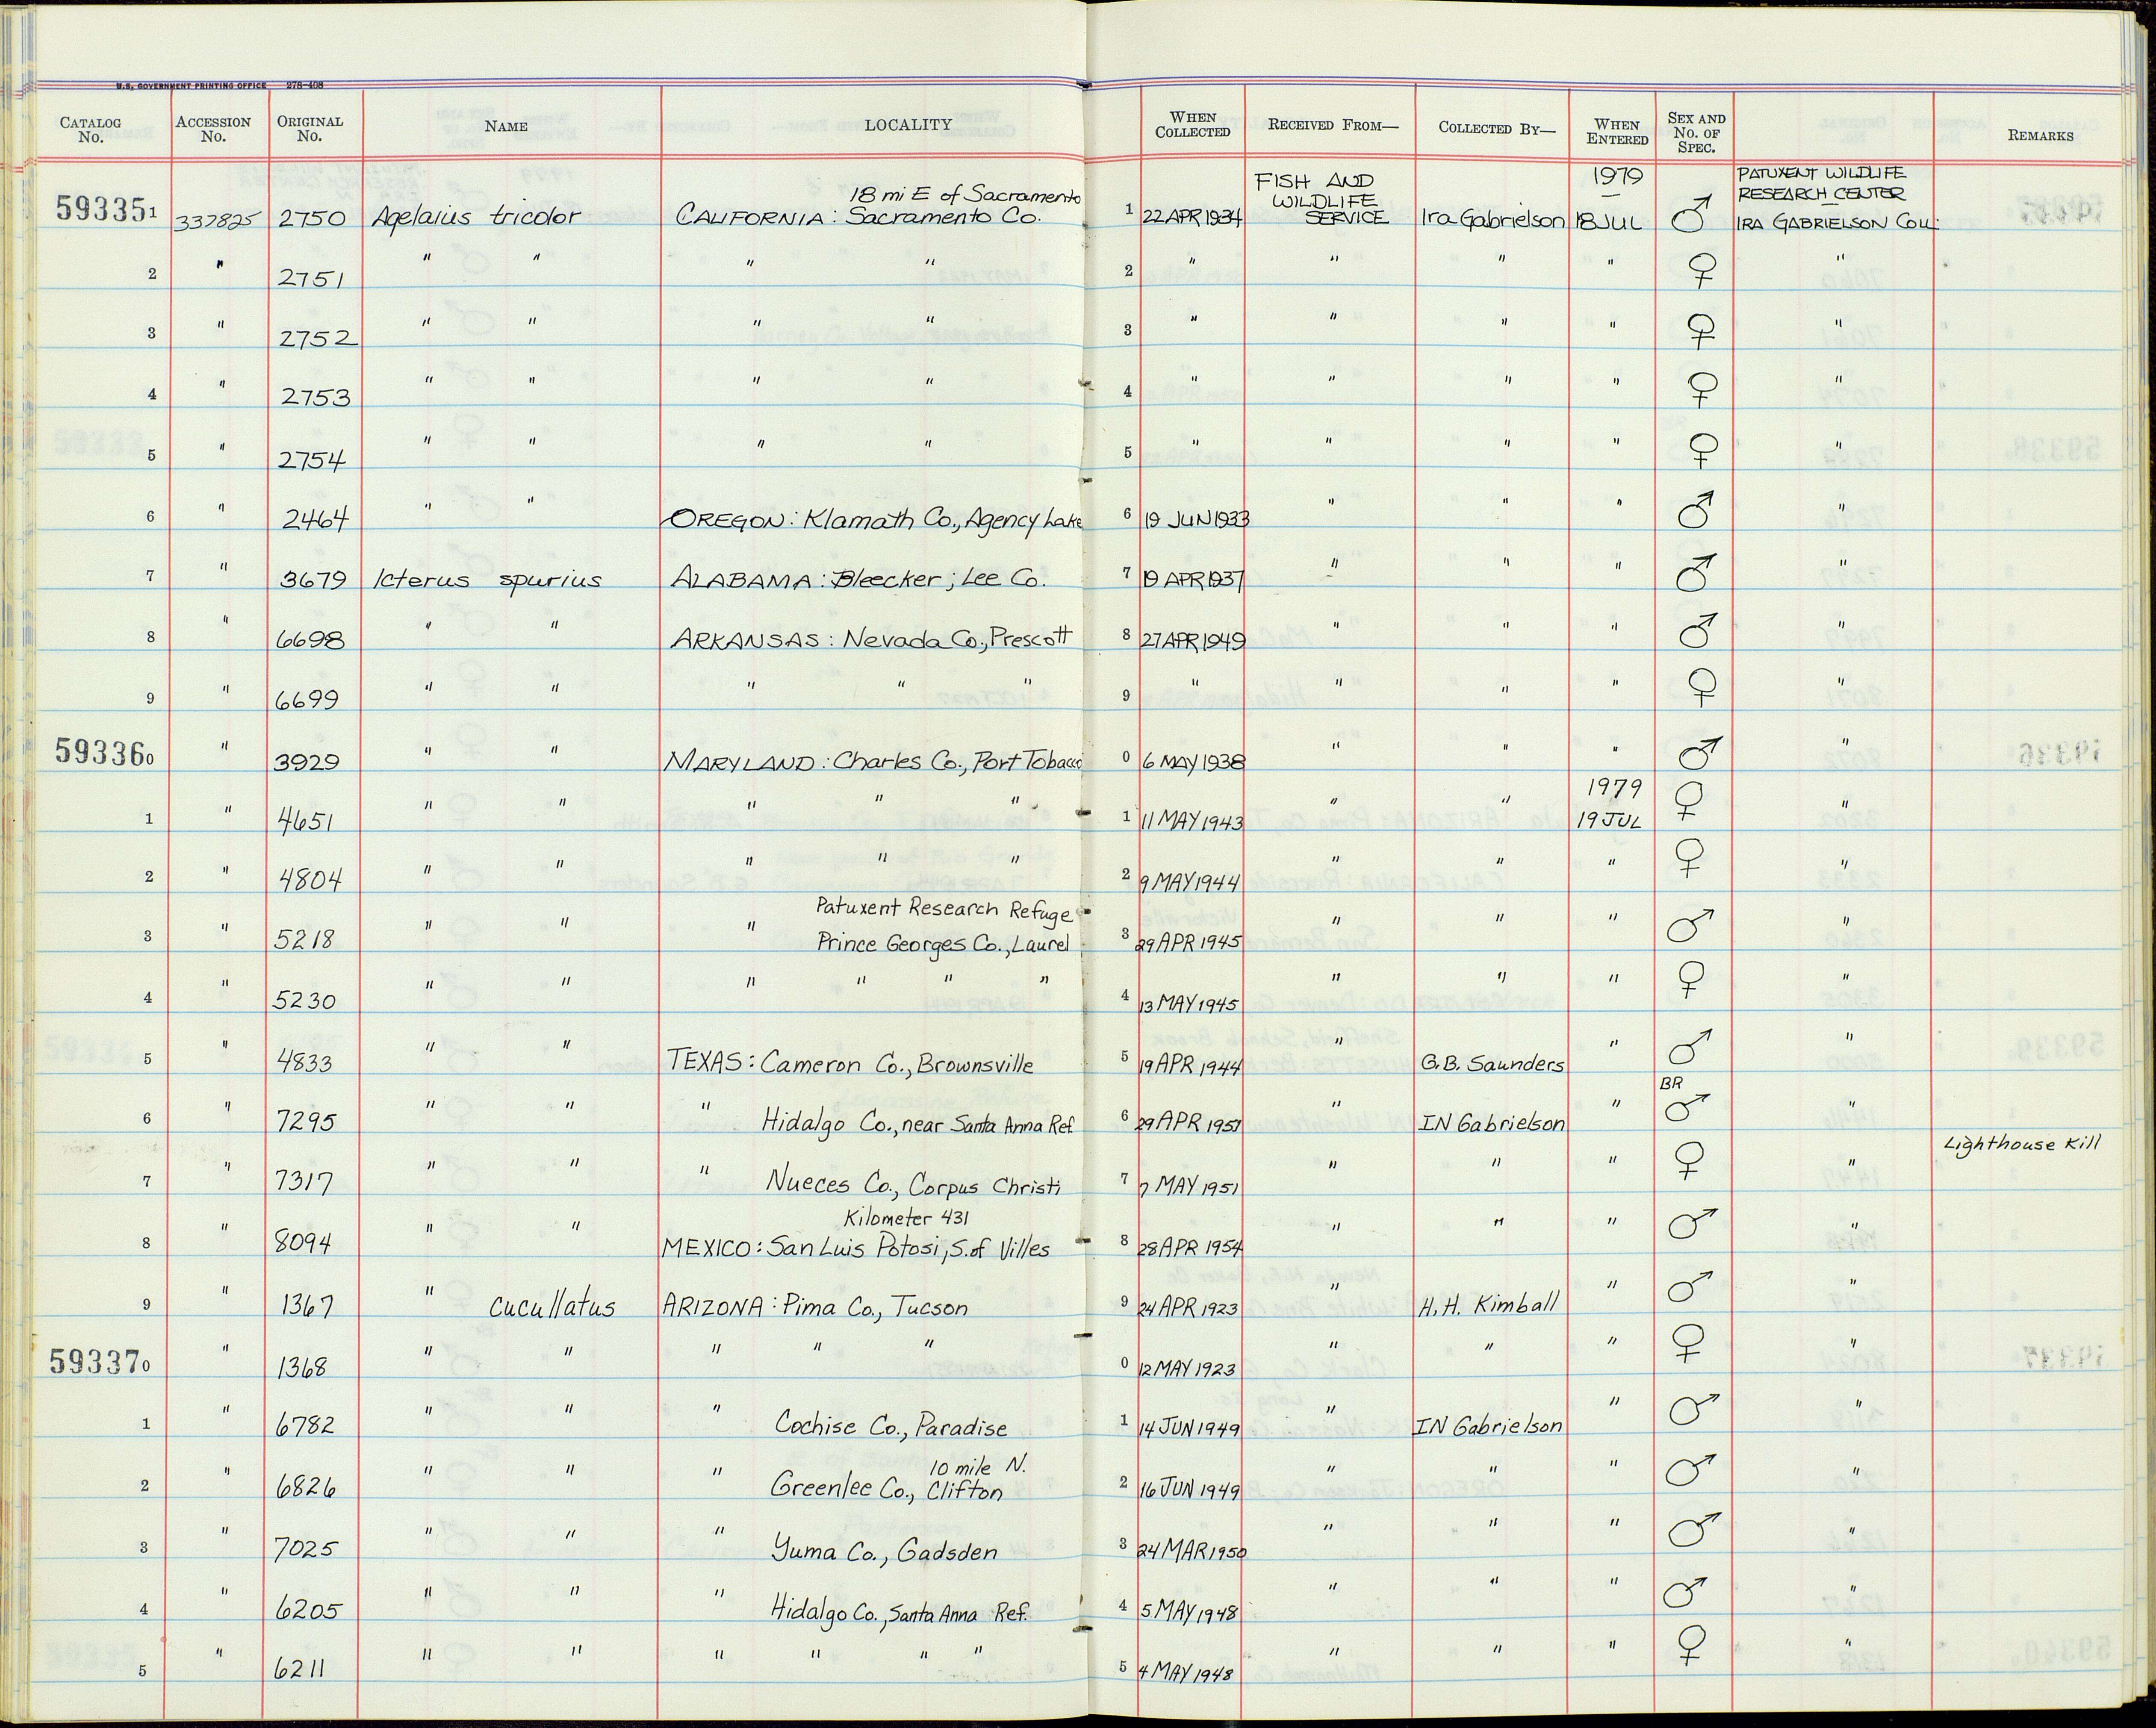 U.S. GOVERNMENT PRINTING OFFICE 278-408
CATALOG No. ACCESSION No. ORIGINAL No. NAME LOCALITY WHEN COLLECTED RECEIVED FROM— COLLECTED BY— WHEN ENTERED SEX AND No. OF SPEC. REMARKS
593351 337825 2750 Agelaius tricolor CALIFORNIA: 18 mi E of Sacramento Sacramento Co. 1 22 APR 1934 FISH AND WILDLIFE SERVICE Ira Gabrielson 1979 – 18 JUL ♂ PATUXENT WILDLIFE RESEARCH CENTER – IRA GABRIELSON COLL.
2 " 2751 " " " " 2 " " " " ♀ "
3 " 2752 " " " " 3 " " " " ♀ "
4 " 2753 " " " " 4 " " " " ♀ "
5 " 2754 " " " " 5 " " " " ♀ "
6 " 2464 " " OREGON: Klamath Co., Agency Lake 6 19 JUN 1933 " " " ♂ "
7 " 3679 Icterus spurius ALABAMA: Bleecker; Lee Co. 7 19 APR 1937 " " " ♂ "
8 " 6698 " " ARKANSAS: Nevada Co., Prescott 8 27 APR 1949 " " " ♂ "
9 " 6699 " " " " " 9 " " " " ♀ "
593360 " 3929 " " MARYLAND: Charles Co., Port Tobacco 0 6 MAY 1938 " " " ♂ "
1 " 4651 " " " " " 1 11 MAY 1943 " " 1979 19 JUL ♀ "
2 " 4804 " " " " " 2 9 MAY 1944 " " " ♀ "
3 " 5218 " " " Patuxent Research Refuge Prince Georges Co., Laurel 3 29 APR 1945 " " " ♂ "
4 " 5230 " " " " " " 4 13 MAY 1945 " " " ♀ "
5 " 4833 " " TEXAS: Cameron Co., Brownsville 5 19 APR 1944 " G.B. Saunders " ♂ "
6 " 7295 " " " Hidalgo Co., near Santa Anna Ref. 6 29 APR 1951 " IN Gabrielson " BR ♂ "
7 " 7317 " " " Nueces Co., Corpus Christi 7 7 MAY 1951 " " " ♀ " Lighthouse Kill
8 " 8094 " " MEXICO: San Luis Potosi, S. of Villes Kilometer 431 8 28 APR 1954 " " " ♂ "
9 " 1367 " cucullatus ARIZONA: Pima Co., Tucson 9 24 APR 1923 " H.H. Kimball " ♂ "
593370 " 1368 " " " " " 0 12 MAY 1923 " " " ♀ "
1 " 6782 " " " Cochise Co., Paradise 1 14 JUN 1949 " IN Gabrielson " ♂ "
2 " 6826 " " " 10 mile N. Greenlee Co., Clifton 2 16 JUN 1949 " " " ♂ "
3 " 7025 " " " Yuma Co., Gadsden 3 24 MAR 1950 " " " ♂ "
4 " 6205 " " " Hidalgo Co., Santa Anna Ref. 4 5 MAY 1948 " " " ♂ "
5 " 6211 " " " " " " 5 4 MAY 1948 " " " ♀ "